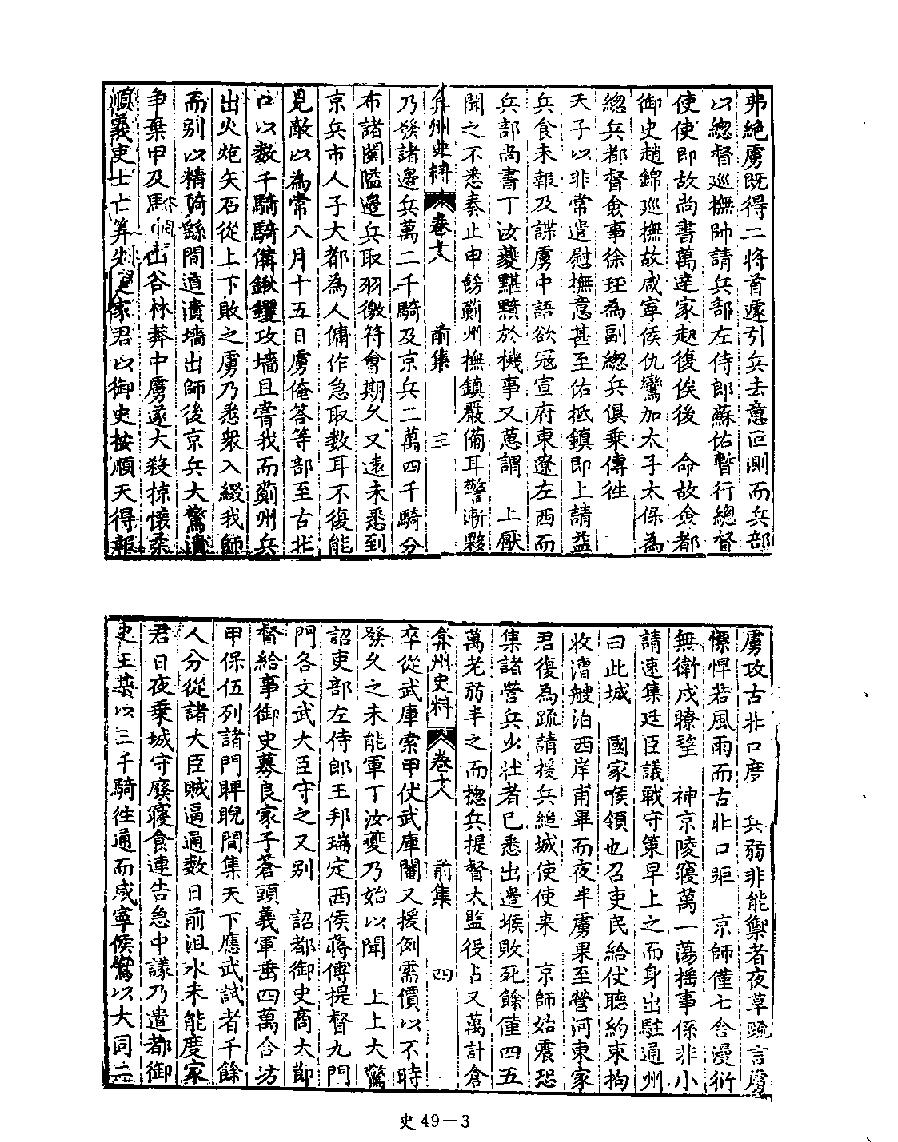 弗絶虜既得二將首遽引兵去意叵測而兵部
以總督巡撫帥請兵部左侍郎蘇祐暫行總督
使使即故尚書萬達家起復俟後　命故僉都
御史趙錦巡撫故咸寧侯仇鸞加太子太保爲
總兵都督僉事徐珏爲副總兵俱乘傳徃
天子以非常遣慰撫意甚至佑抵鎮即上請益
兵食未報及諜虜中語欲寇宣府東遼左西而
兵部尚書丁汝夔黯黯於機事又意謂　上厭
聞之不悉奏止申飭薊州撫鎮嚴備耳警漸夥
弇州史料　卷十八　前集　三
乃發諸邊兵萬二千騎及京兵二萬四千騎分
布諸關隘邊兵取羽徵符會期久又遠未悉到
京兵市人子大都為人傭作急取数耳不復能
見敵以為常八月十五日虜俺答等部至古北
口以数千騎騎備鍬钁攻墻且嘗我而薊州兵
出火炮矢石從上下敗之虜乃悉衆入綴我師
而别以精騎繇間道潰墻出師後京兵大驚潰
争棄甲及馬　　山谷林莽中虜遂大殺掠懷柔
順義吏士亡算　　　家君以御史按順天得報
虜攻古北口度　兵弱非能禦者夜草疏言虜
慓悍若風雨而古北口距　京師僅七舍漫衍
無衛戍瞭望　神京陵寢萬一蕩揺事係非小
請速集廷臣議戰守策早上之而身出駐通州
曰此城　國家喉領也召吏民給仗聽約束拘
收漕艘泊西岸甫畢而夜半虜果至營河東家
君復為疏請援兵縋城使使来　京師始震恐
集諸營兵少壯者已悉出邊堠敗死餘僅四五
萬老弱半之而摠兵提督太監役占又萬計倉
弇州史料　卷十八　前集　四
卒從武庫索甲仗武庫閹又援例需價以不時
發久之未能軍丁汝夔乃始以聞　上上大驚
詔吏部左侍郎王邦瑞定西侯蔣傅提督九門
門各文武大臣守之又别　詔都御史商大節
督給事御史募良家子蒼頭義軍垂四萬合坊
甲保伍列諸門睥睨間集天下應武試者千餘
人分從諸大臣贼逼遍数日前沮水未能度家
君日夜乗城守廢寢食連告急中議乃遣都御
史王　以三千騎徃通而咸寧侯鸞以大同二
史 49－3